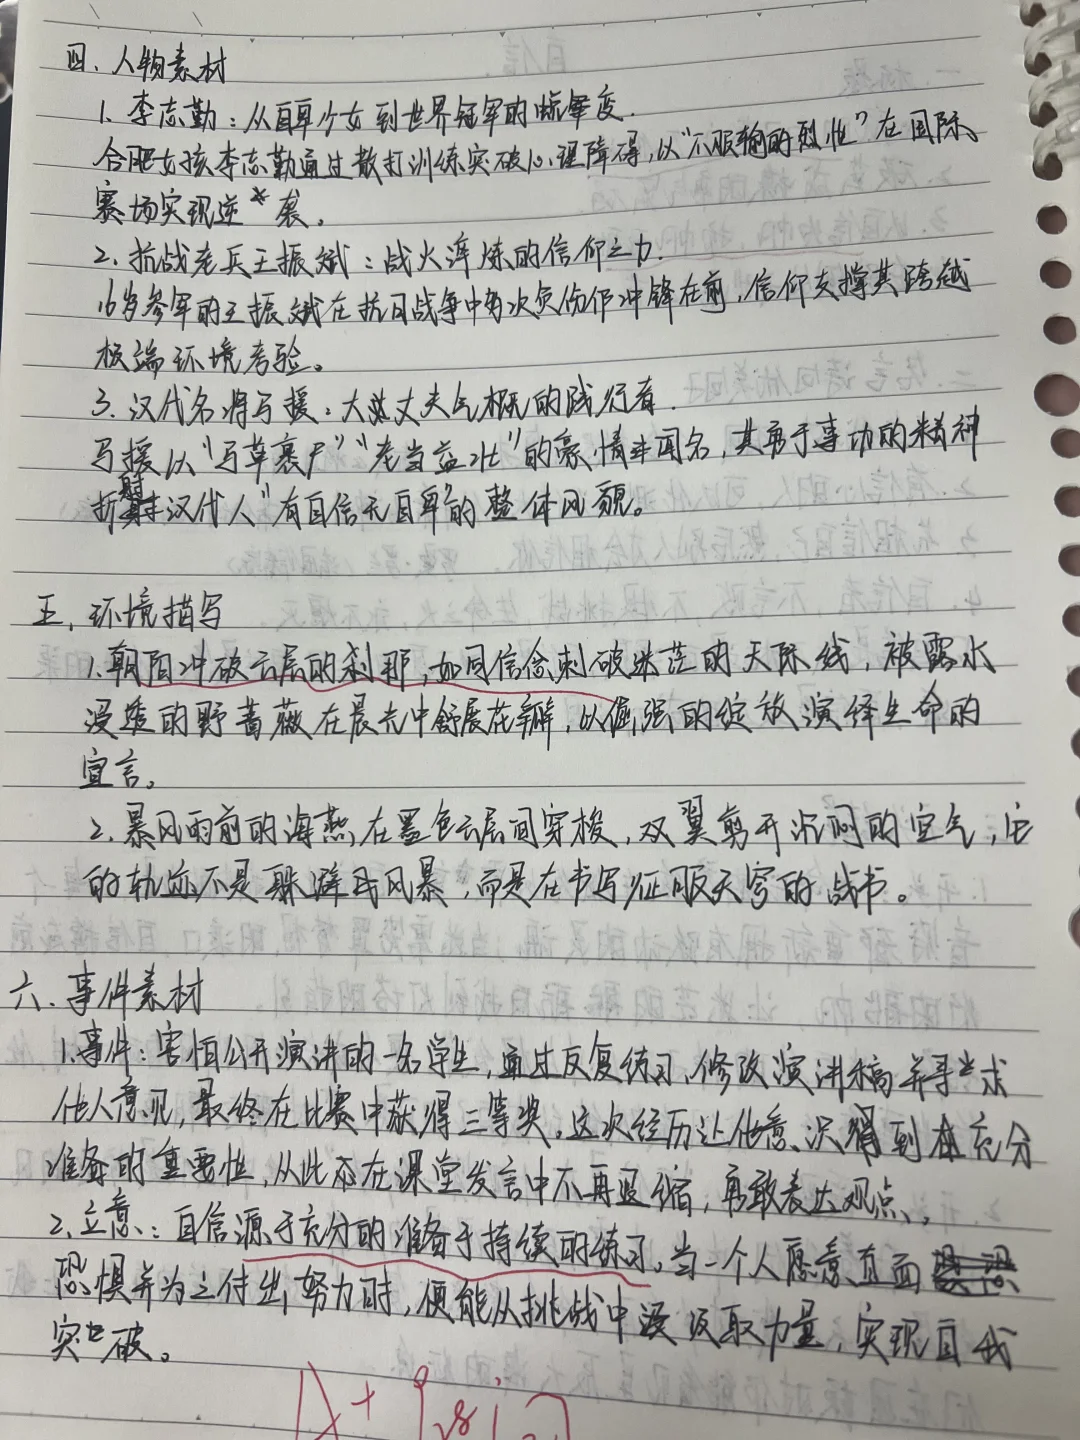 四、人物素材
1、李志勤：从自卑少女到世界冠军的蜕变.
合肥女孩李志勤通过散打训练突破心理障碍，以“不服输的烈性”在国际
赛场实现逆袭。
2、抗战老兵王振斌：战火淬炼的信仰之力.
16岁参军的王振斌在抗日战争中多次负伤仍冲锋在前，信仰支撑其跨越
极端环境考验。
3、汉代名将马援：大丈夫气概的践行者.
马援以“马革裹尸”“老当益壮”的豪情闻名，其勇于事功的精神
折射汉代人“有自信无自卑”的整体风貌。
五、环境描写
1.朝阳冲破云层的刹那，如同信念刺破迷茫的天际线，被露水
浸透的野蔷薇在晨光中舒展花瓣，以倔强的绽放演绎生命的
宣言。
2、暴风雨前的海燕在墨色云层间穿梭，双翼剪开沉闷的空气，它
的轨迹不是躲避风暴，而是在书写征服天穹的战书。
六、事件素材
1.事件：害怕公开演讲的一名学生，通过反复练习、修改演讲稿并寻求
他人意见，最终在比赛中获得三等奖。这次经历让他意识到充分
准备的重要性，从此在课堂发言中不再退缩，勇敢表达观点。
2.立意：自信源于充分的准备于持续的练习，当一个人愿意直面
恐惧并为之付出努力时，便能从挑战中汲取力量，实现自我
突破。
A+